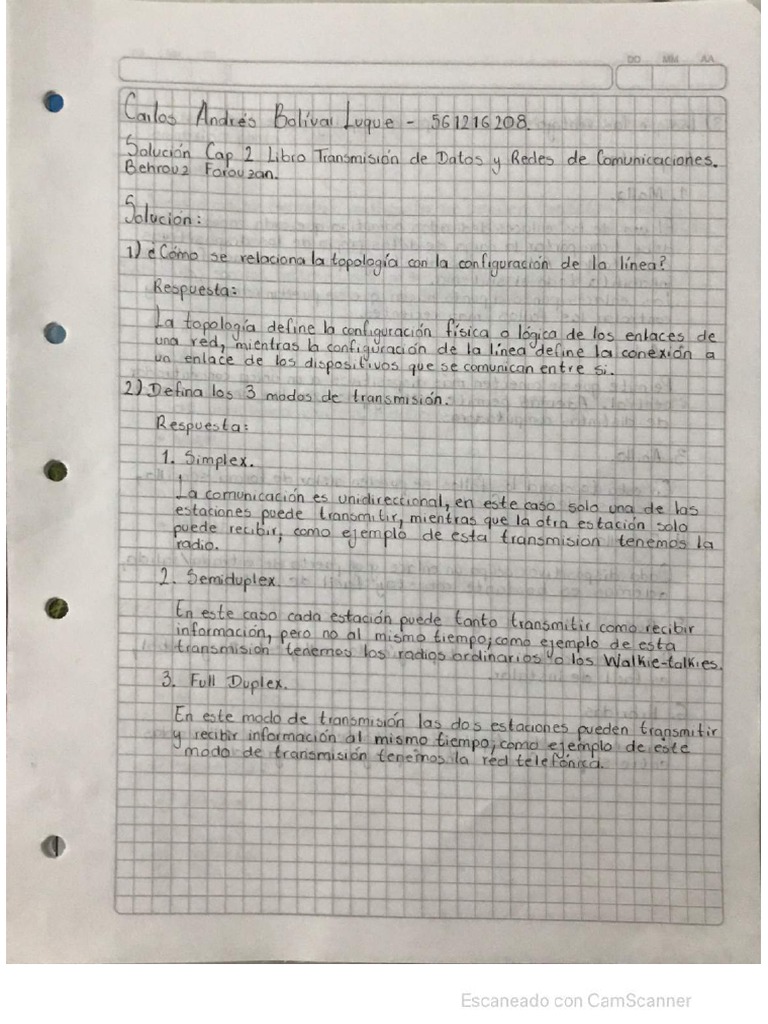 DD MM AA
Carlos Andrés Bolívar Luque - 561216208.
Solución Cap 2 Libro Transmisión de Datos y Redes de Comunicaciones.
Behrouz Forouzan.
Solución:
1) ¿Cómo se relaciona la topología con la configuración de la línea?
Respuesta:
La topología define la configuración física o lógica de los enlaces de
una red, mientras la configuración de la línea define la conexión a
un enlace de los dispositivos que se comunican entre si.
2) Defina los 3 modos de transmisión.
Respuesta:
1. Simplex.
La comunicación es unidireccional, en este caso solo una de las
estaciones puede transmitir, mientras que la otra estación solo
puede recibir, como ejemplo de esta transmision tenemos la
radio.
2. Semiduplex.
En este caso cada estación puede tanto transmitir como recibir
información, pero no al mismo tiempo; como ejemplo de esta
transmision tenemos los radios ordinarios y/o los Walkie-talkies.
3. Full Duplex.
En este modo de transmisión las dos estaciones pueden transmitir
y recibir información al mismo tiempo; como ejemplo de este
modo de transmisión tenemos la red telefónica.
Escaneado con CamScanner